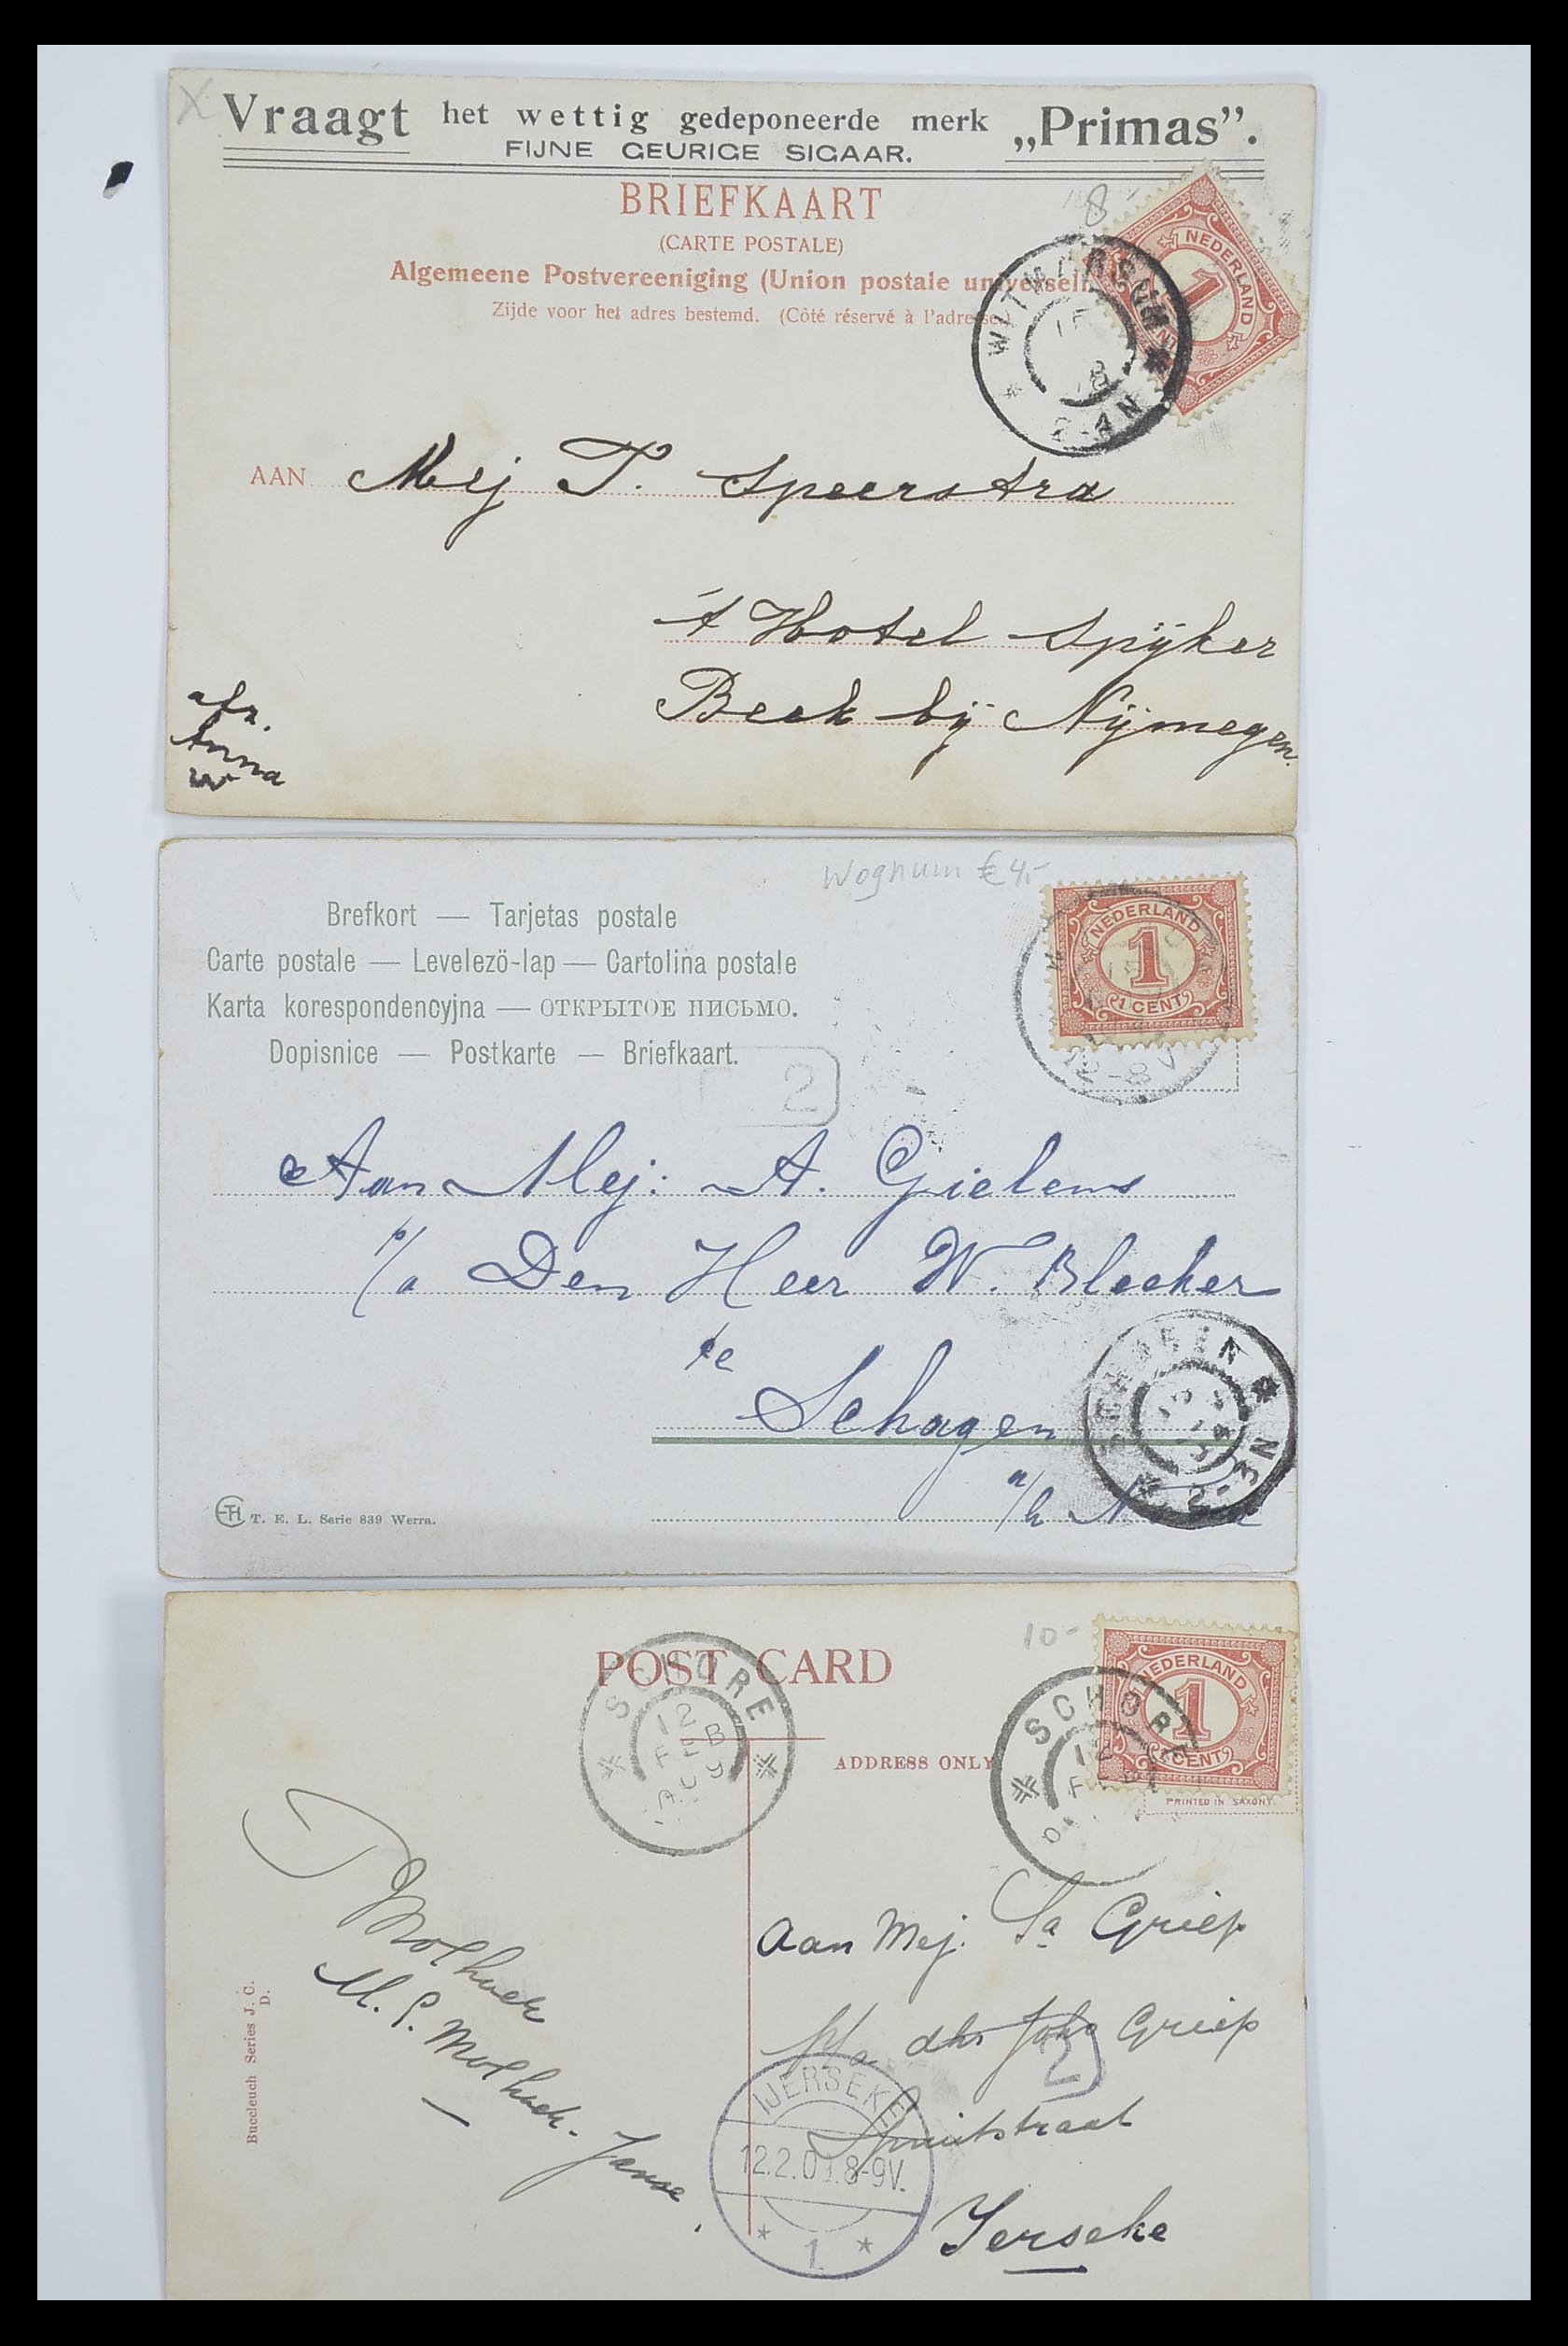 Vraagt het wettig gedeponeerde merk „Primas”.
FIJNE GEURIGE SIGAAR.
BRIEFKAART
(CARTE POSTALE)
8
Algemeene Postvereeniging (Union postale universell
Zijde voor het adres bestemd. (Côté réservé à l'adresse.)
NEDERLAND
1
WITMARSUM
AAN Mej T. Speerstra
't Hotel Spijker
Beek bij Nijmegen.
afz.
Anna
W
Wognum € 4,-
Brefkort — Tarjetas postale
Carte postale — Levelezö-lap — Cartolina postale
Karta korespondencyjna — ОТКРЫТОЕ ПИСЬМО.
Dopisnice — Postkarte — Briefkaart.
NEDERLAND
1
1 CENT
2
Aan Mej: A. Gielens
p/a Den Heer W. Blecker
te
Schagen
SCHAGEN
a/h N
T. E. L. Serie 839 Werra.
10-
POST CARD
ADDRESS ONLY
NEDERLAND
1
CENT
PRINTED IN SAXONY
SCHORE
12
FEB
09
SCHORE
12
Aan Mej. Sa Griep
p/a dhr Joh Griep
Spuitstraat
Ierseke
IJERSEKE
12.2.0 .8-9V.
1
M. P. Molhoek-Janse
Buccleuch Series J. C.
D.